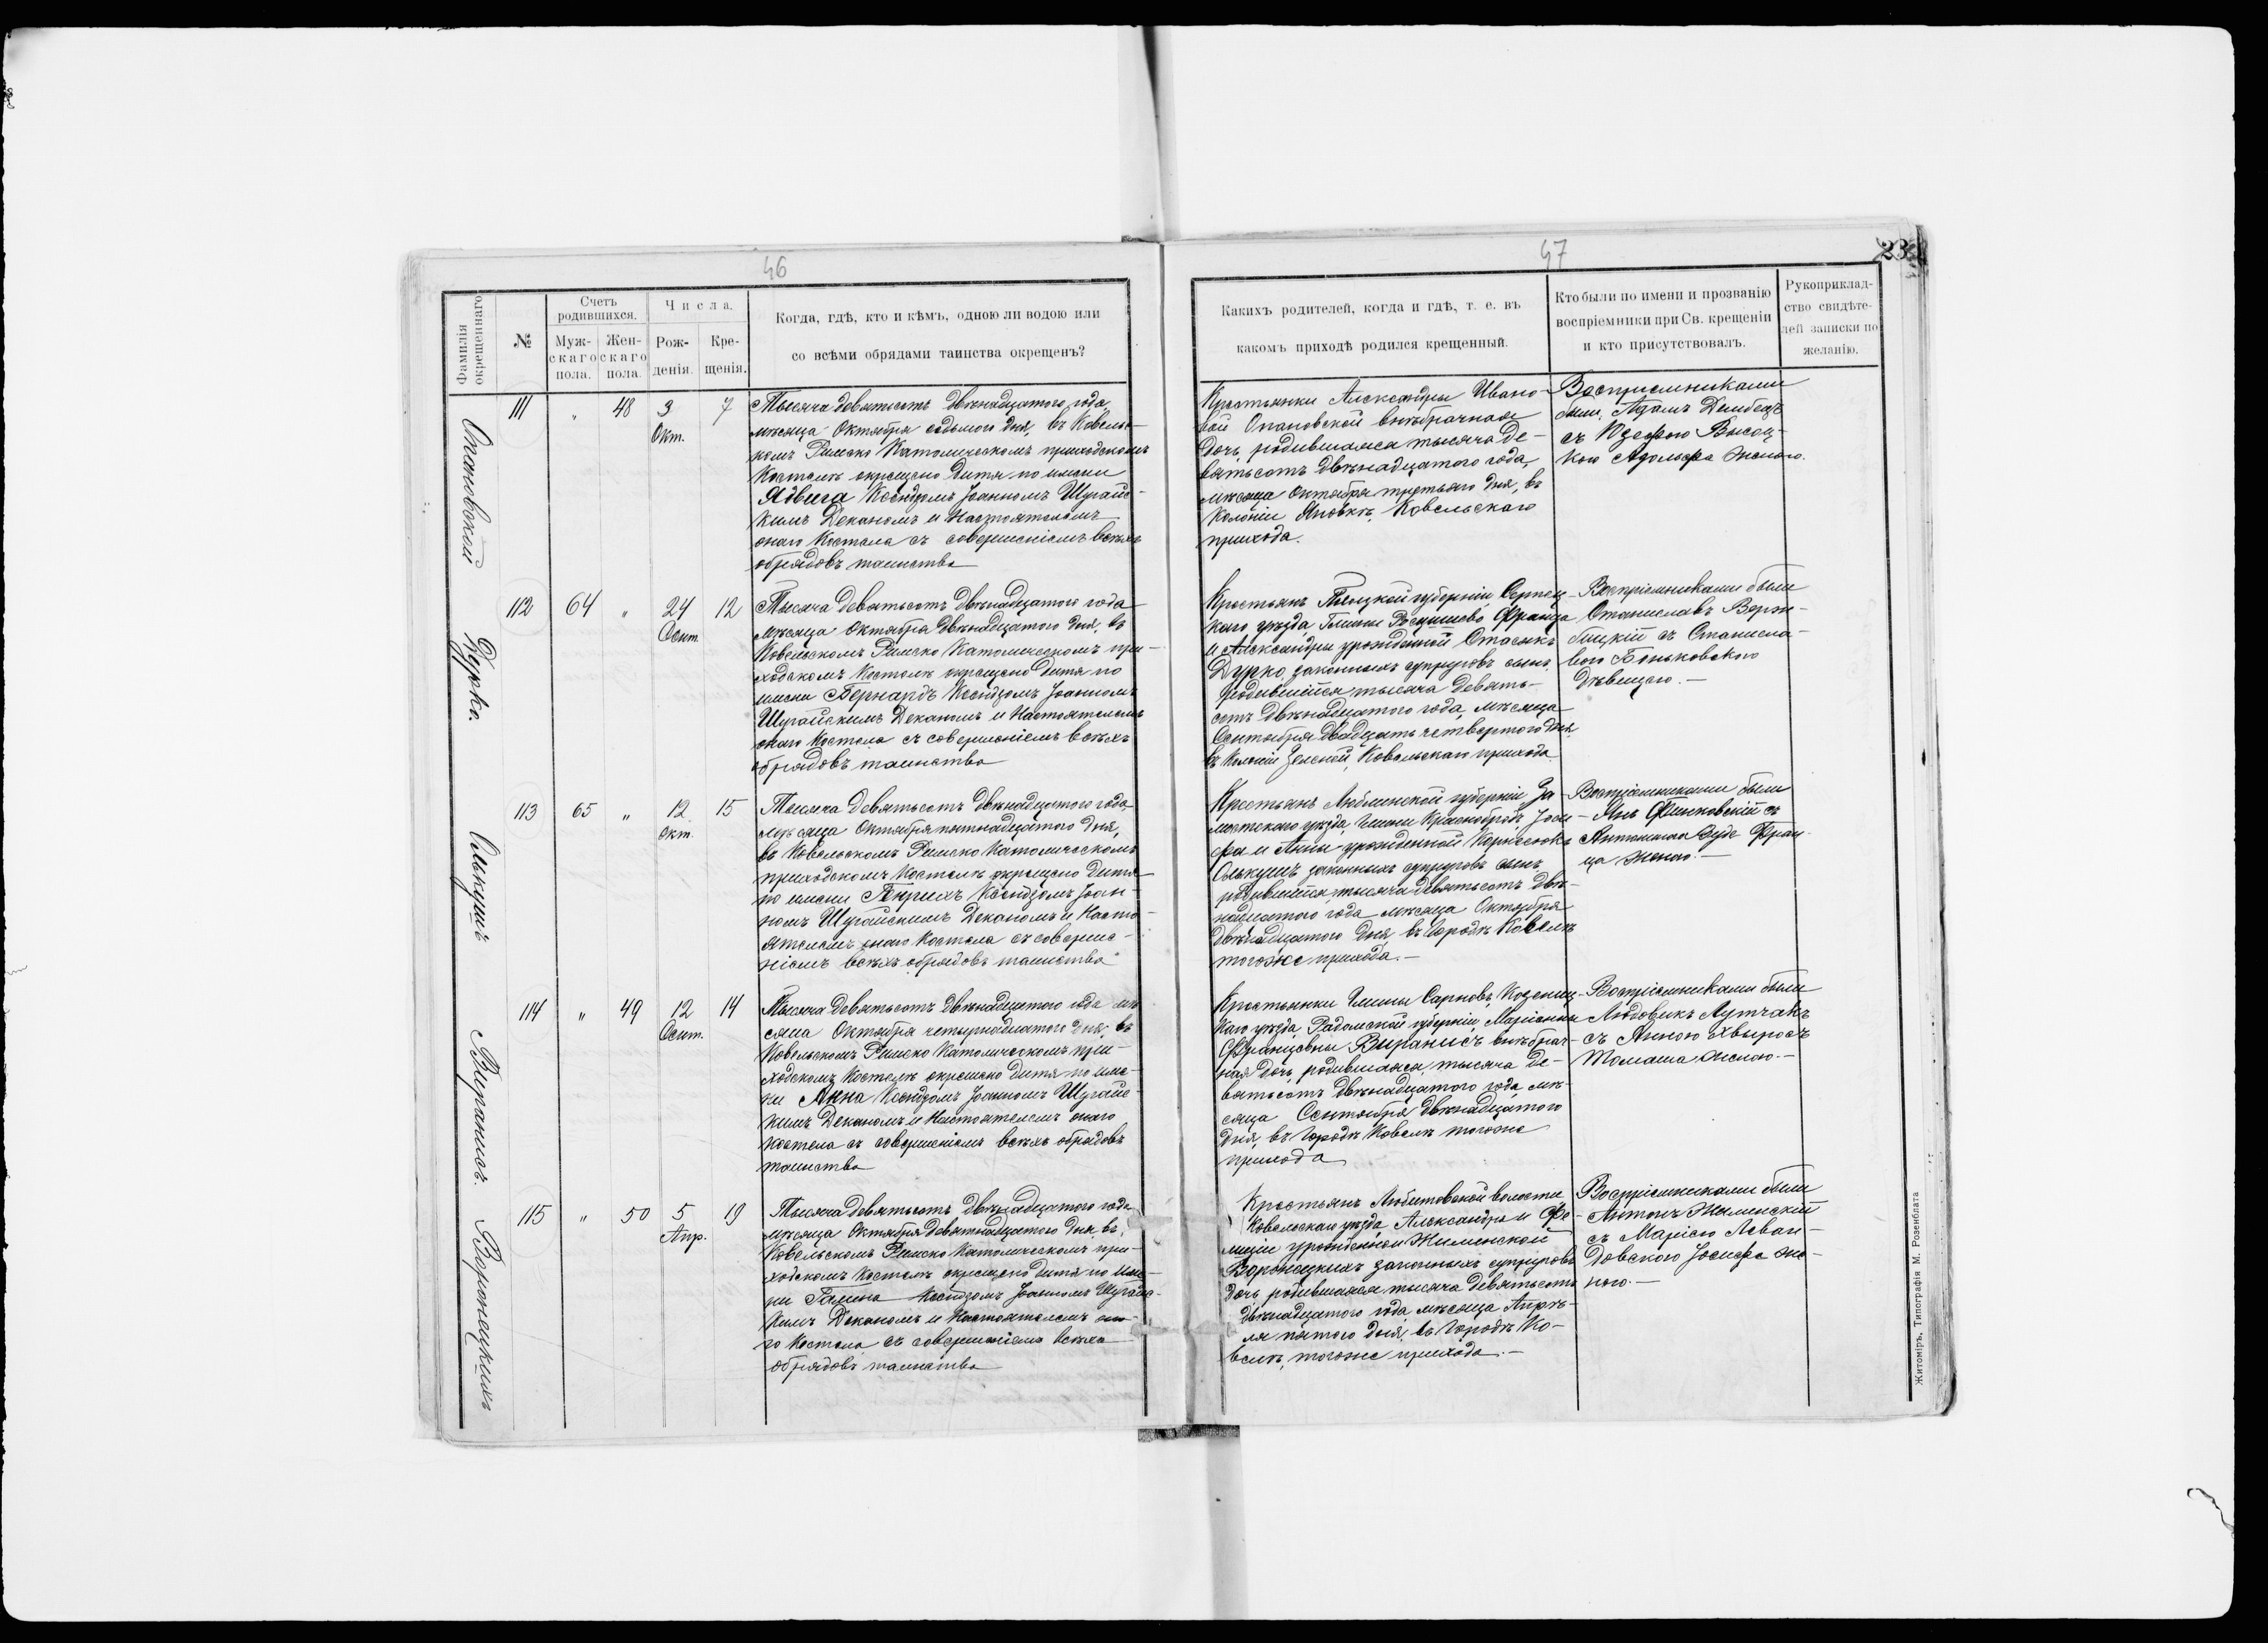 46
Фамилія окрещеннаго
№
Счетъ родившихся.
Муж-скаго пола.
Жен-скаго пола.
Числа.
Рож-денія.
Кре-щенія.
Когда, гдѣ, кто и кѣмъ, одною ли водою или
со всѣми обрядами таинства окрещенъ?
Опановской
111 " 48 3 Окт. 7
Тысяча девятьсотъ двѣнадцатого года
мѣсяца Октября седьмого дня, въ Ковельс-
комъ Римско Католическомъ приходскомъ
Костелѣ окрещено дитя по имени
Ядвига Ксендзомъ Іоанномъ Шурайс-
кимъ Деканомъ и Настоятелемъ
онаго Костела съ совершеніемъ всѣхъ
обрядовъ таинства
Дурко.
112 64 " 24 Сент. 12
Тысяча девятьсотъ двѣнадцатого года
мѣсяца Октября двѣнадцатого дня, въ
Ковельскомъ Римско Католическомъ при-
ходскомъ Костелѣ окрещено дитя по
имени Бернардъ Ксендзомъ Іоанномъ
Шурайскимъ Деканомъ и Настоятелемъ
онаго Костела съ совершеніемъ всѣхъ
обрядовъ таинства
Олькушъ
113 65 " 12 Окт. 15
Тысяча девятьсотъ двѣнадцатого года
мѣсяца Октября пятнадцатого дня,
въ Ковельскомъ Римско Католическомъ
приходскомъ Костелѣ окрещено дитя
по имени Генрихъ Ксендзомъ Іоан-
номъ Шурайскимъ Деканомъ и Насто-
ятелемъ онаго Костела съ соверше-
ніемъ всѣхъ обрядовъ таинства
Виранисъ.
114 " 49 12 Сент. 14
Тысяча девятьсотъ двѣнадцатого года мѣ
сяца Октября четырнадцатого дня, въ
Ковельскомъ Римско Католическомъ при-
ходскомъ Костелѣ окрещено дитя по име-
ни Анна Ксендзомъ Іоанномъ Шурайс-
кимъ Деканомъ и Настоятелемъ онаго
Костела съ совершеніемъ всѣхъ обрядовъ
таинства
Воронецкихъ
115 " 50 5 Апр. 19
Тысяча девятьсотъ двѣнадцатого года
мѣсяца Октября девятнадцатого дня, въ
Ковельскомъ Римско Католическомъ при-
ходскомъ Костелѣ окрещено дитя по име-
ни Галина Ксендзомъ Іоанномъ Шурайс-
кимъ Деканомъ и Настоятелемъ она-
го Костела съ совершеніемъ всѣхъ
обрядовъ таинства
47
23
Какихъ родителей, когда и гдѣ, т. е. въ
какомъ приходѣ родился крещенный.
Кто были по имени и прозванію
воспріемники при Св. крещеніи
и кто присутствовалъ.
Рукоприклад-
ство свидѣте-
лей записки по
желанію.
Крестьянки Александры Ивано-
вой Опановской внѣбрачная
дочь, родившаяся тысяча де-
вятьсотъ двѣнадцатого года,
мѣсяца Октября третьяго дня, въ
Колоніи Яновкѣ, Ковельскаго
прихода.
Воспріемниками
были, Адамъ
съ Юзефою Высоц-
кою Адольфа женою.
Крестьянъ Плоцкой губерніи Серпец-
каго уѣзда Гмины Франца
и Александры урожденной Стасюкъ
Дурко, законныхъ супруговъ сынъ,
родившійся тысяча девять-
сотъ двѣнадцатого года, мѣсяца
Сентября двадцать четвертого дня
въ Колоніи Зеленой, Ковельскаго прихода.
Воспріемниками были
Станиславъ Верж-
бицкій съ Станисла-
вою Боньковского
дѣвицею.—
Крестьянъ Люблинской губерніи За-
мостскаго уѣзда, Гмины Краснобродъ Іоси-
фа и Анны урожденной
Олькушъ законныхъ супруговъ сынъ,
родившійся тысяча девятьсотъ двѣ-
надцатого года мѣсяца Октября
двѣнадцатого дня, въ Городѣ Ковелѣ
тогоже прихода.—
Воспріемниками были
Янъ Финковскій съ
Антониною Дуде Фран-
ца женою.—
Крестьянки Гмины Сарновъ, Козениц-
каго уѣзда Радомской губерніи, Маріанны
Францевны Виранисъ внѣбрач-
ная дочь, родившаяся, тысяча де-
вятьсотъ двѣнадцатого года, мѣ-
сяца Сентября двѣнадцатого
дня, въ Городѣ Ковелѣ тогоже
прихода
Воспріемниками были
Людовикъ Лутчакъ
съ Анною Хвыросъ
Томаша женою.—
Крестьянъ Любитовской волости
Ковельскаго уѣзда, Александра и Фе-
лиціи урожденной Жилинской
Воронецкихъ законныхъ супруговъ
дочь родившаяся тысяча девятьсотъ
двѣнадцатого года мѣсяца Апрѣ-
ля пятого дня, въ Городѣ Ко-
велѣ, тогоже прихода.—
Воспріемниками были
Антонъ Жилинскій
съ Маріею Леван-
довскою Іосифа же-
ною.—
Житоміръ, Типографія М. Розенблата